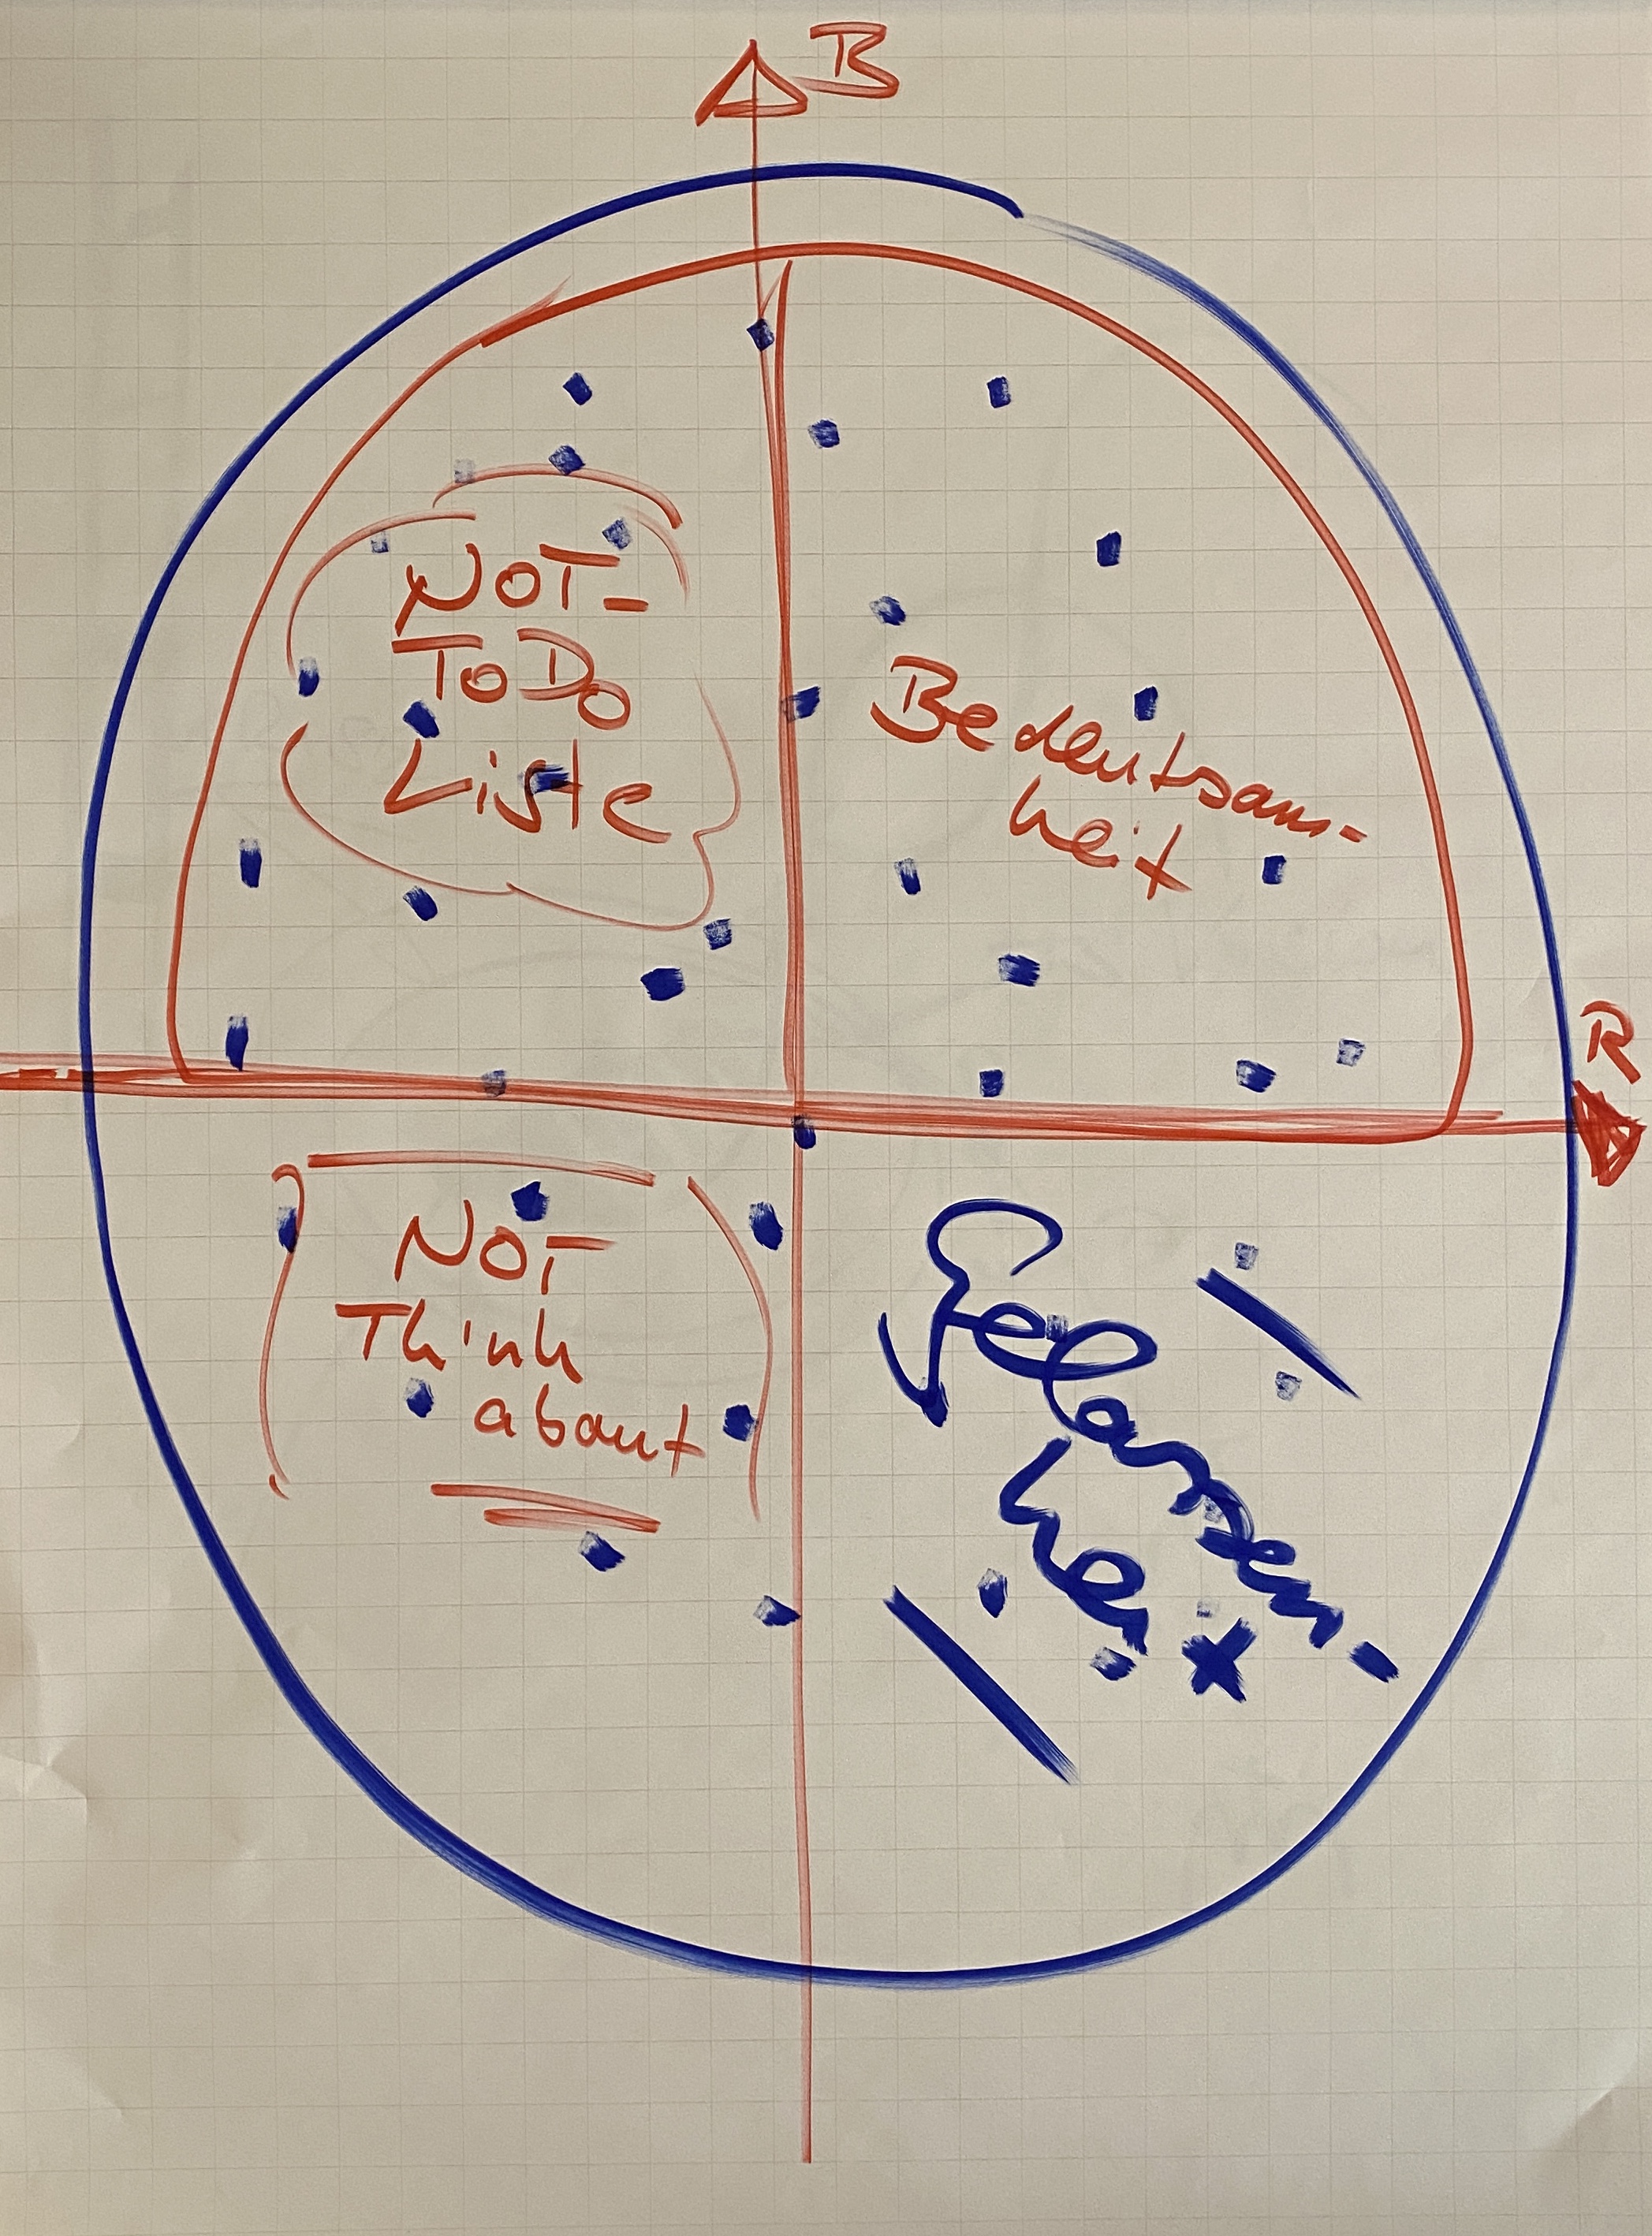 B
NOT-
ToDo
Liste
Bedeutsam-
keit
R
NOT
Think
about
Gelassen-
heit